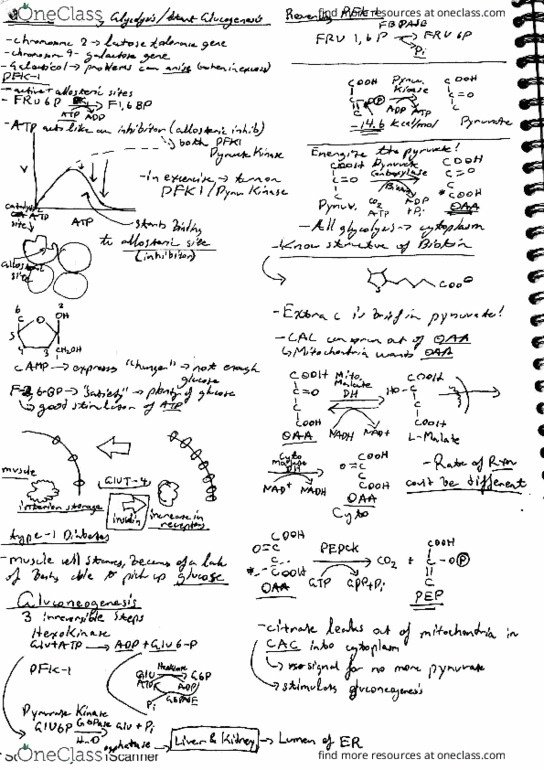 Glycolysis/Start Gluconeogenesis
- chromosome 2 → lactose tolerance gene
- chromosome 9 - galactose gene
- Galactitol → problems can arise (when in excess)
PFK-1
- active + allosteric sites
- FRU 6P → F1,6BP
ATP ADP
- ATP acts like an inhibitor (allosteric inhib)
both PFK1
Pyruvate Kinase
V
- In excersize → turn on
PFK1/Pyru Kinase
ATP
ATP
starts binding
to allosteric site
(inhibitor)
allosteric
site
6
C
O
3 OH
5
4 3
CH2OH
cAMP → expresses "hunger" → not enough
glucose
F-2,6-BP → "satiety" → plenty of glucose
↳ good stimulation of ATP
muscle
GLUT-4
insulin
increase in
receptors
storage
type-1 Diabetes
- muscle cell starves, because of a lack
of being able to pick up glucose
Gluconeogenesis
3 irreversible steps
HexoKinase
Glu + ATP → ADP + Glu 6-P
PFK-1
Hexokinase
Glu G6P
ATP ADP
Pi G6PASE
Pyruvate Kinase
Glu6P G6Pase → Glu + Pi
H2O
phosphatase → Liver & Kidney → Lumen of ER
Reversing PFK-1
FBPASE
FRU 1,6P FRU 6P
Pi
COOH
C
C
P
Pyruv.
Kinase
ADP ATP
-14.6 kcal/mol
COOH
C=O
C
Pyruvate
Energize the pyruvate!
COOH
C=O
C
Pyruv.
Pyruvate
Carboxylase
Biotin
CO2
ATP
ADP
+Pi
COOH
C=O
C
*COOH
OAA
- All glycolysis → cytoplasm
- Know structure of Biotin
S
COO⊖
- Extra C is brief in pyruvate!
- CAC can run out of OAA
↳ Mitochondria wants OAA
COOH
C=O
C
COOH
OAA
Mito.
Malate
DH
NADH NAD+
COOH
HO-C
C
COOH
L-Malate
Cyto
Malate
DH
NAD+ NADH
COOH
O=C
C
COOH
OAA
Cyto
- Rate of Rxn
could be different
COOH
O=C
C
*-COOH
OAA
PEPCK
GTP GDP+Pi
CO2 +
COOH
C-O P
C
PEP
- citrate leaks out of mitochondria in
CAC into cytoplasm
↳ signal for no more pyruvate
→ stimulates gluconeogenesis
OneClass
find more resources at oneclass.com
OneClass
Scanner
find more resources at oneclass.com